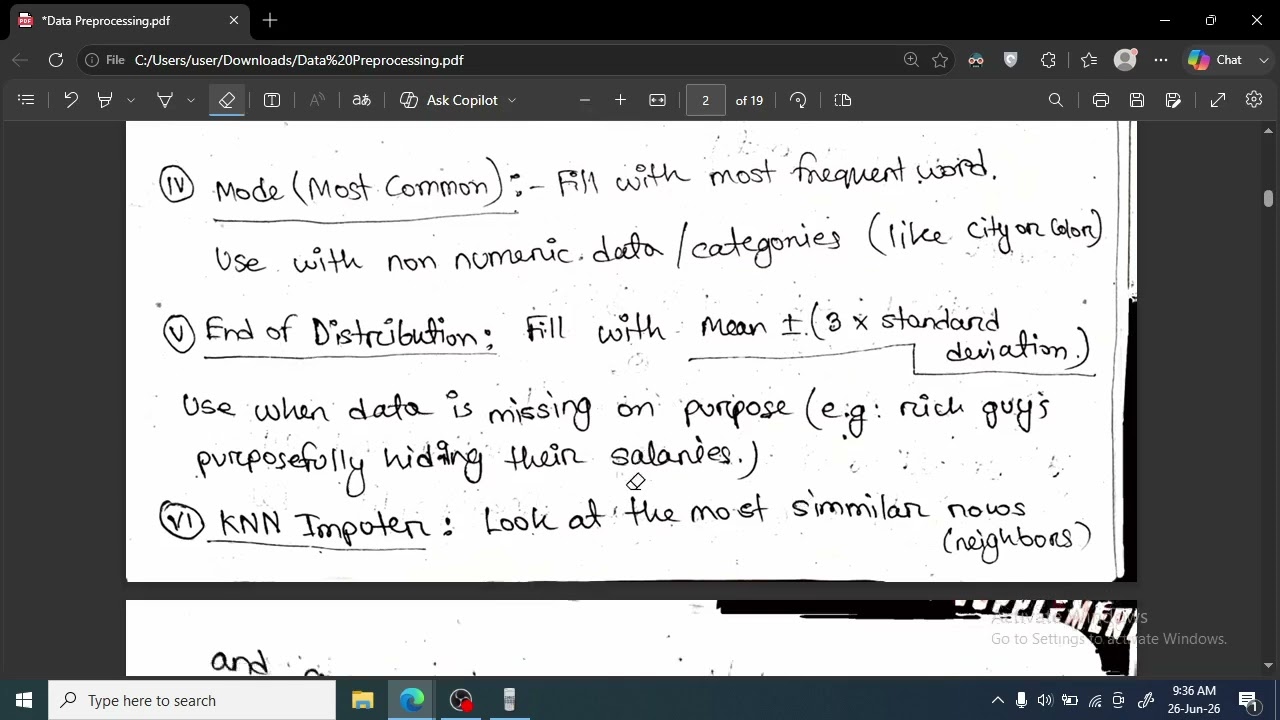 *Data Preprocessing.pdf
File C:/Users/user/Downloads/Data%20Preprocessing.pdf
Chat
Ask Copilot
2 of 19
IV Mode (Most Common) :- Fill with most frequent word.
Use with non numeric data/categories (like city or color)
V End of Distribution: Fill with mean ± (3 x standard
deviation.)
Use when data is missing on purpose (e.g: rich guy's
purposefully hiding their salaries.)
VI KNN Imputer: Look at the most simmilar rows
(neighbors)
SUPPLEMENT
and
Activate Windows
Go to Settings to activate Windows.
Type here to search
9:36 AM
26-Jun-26
1